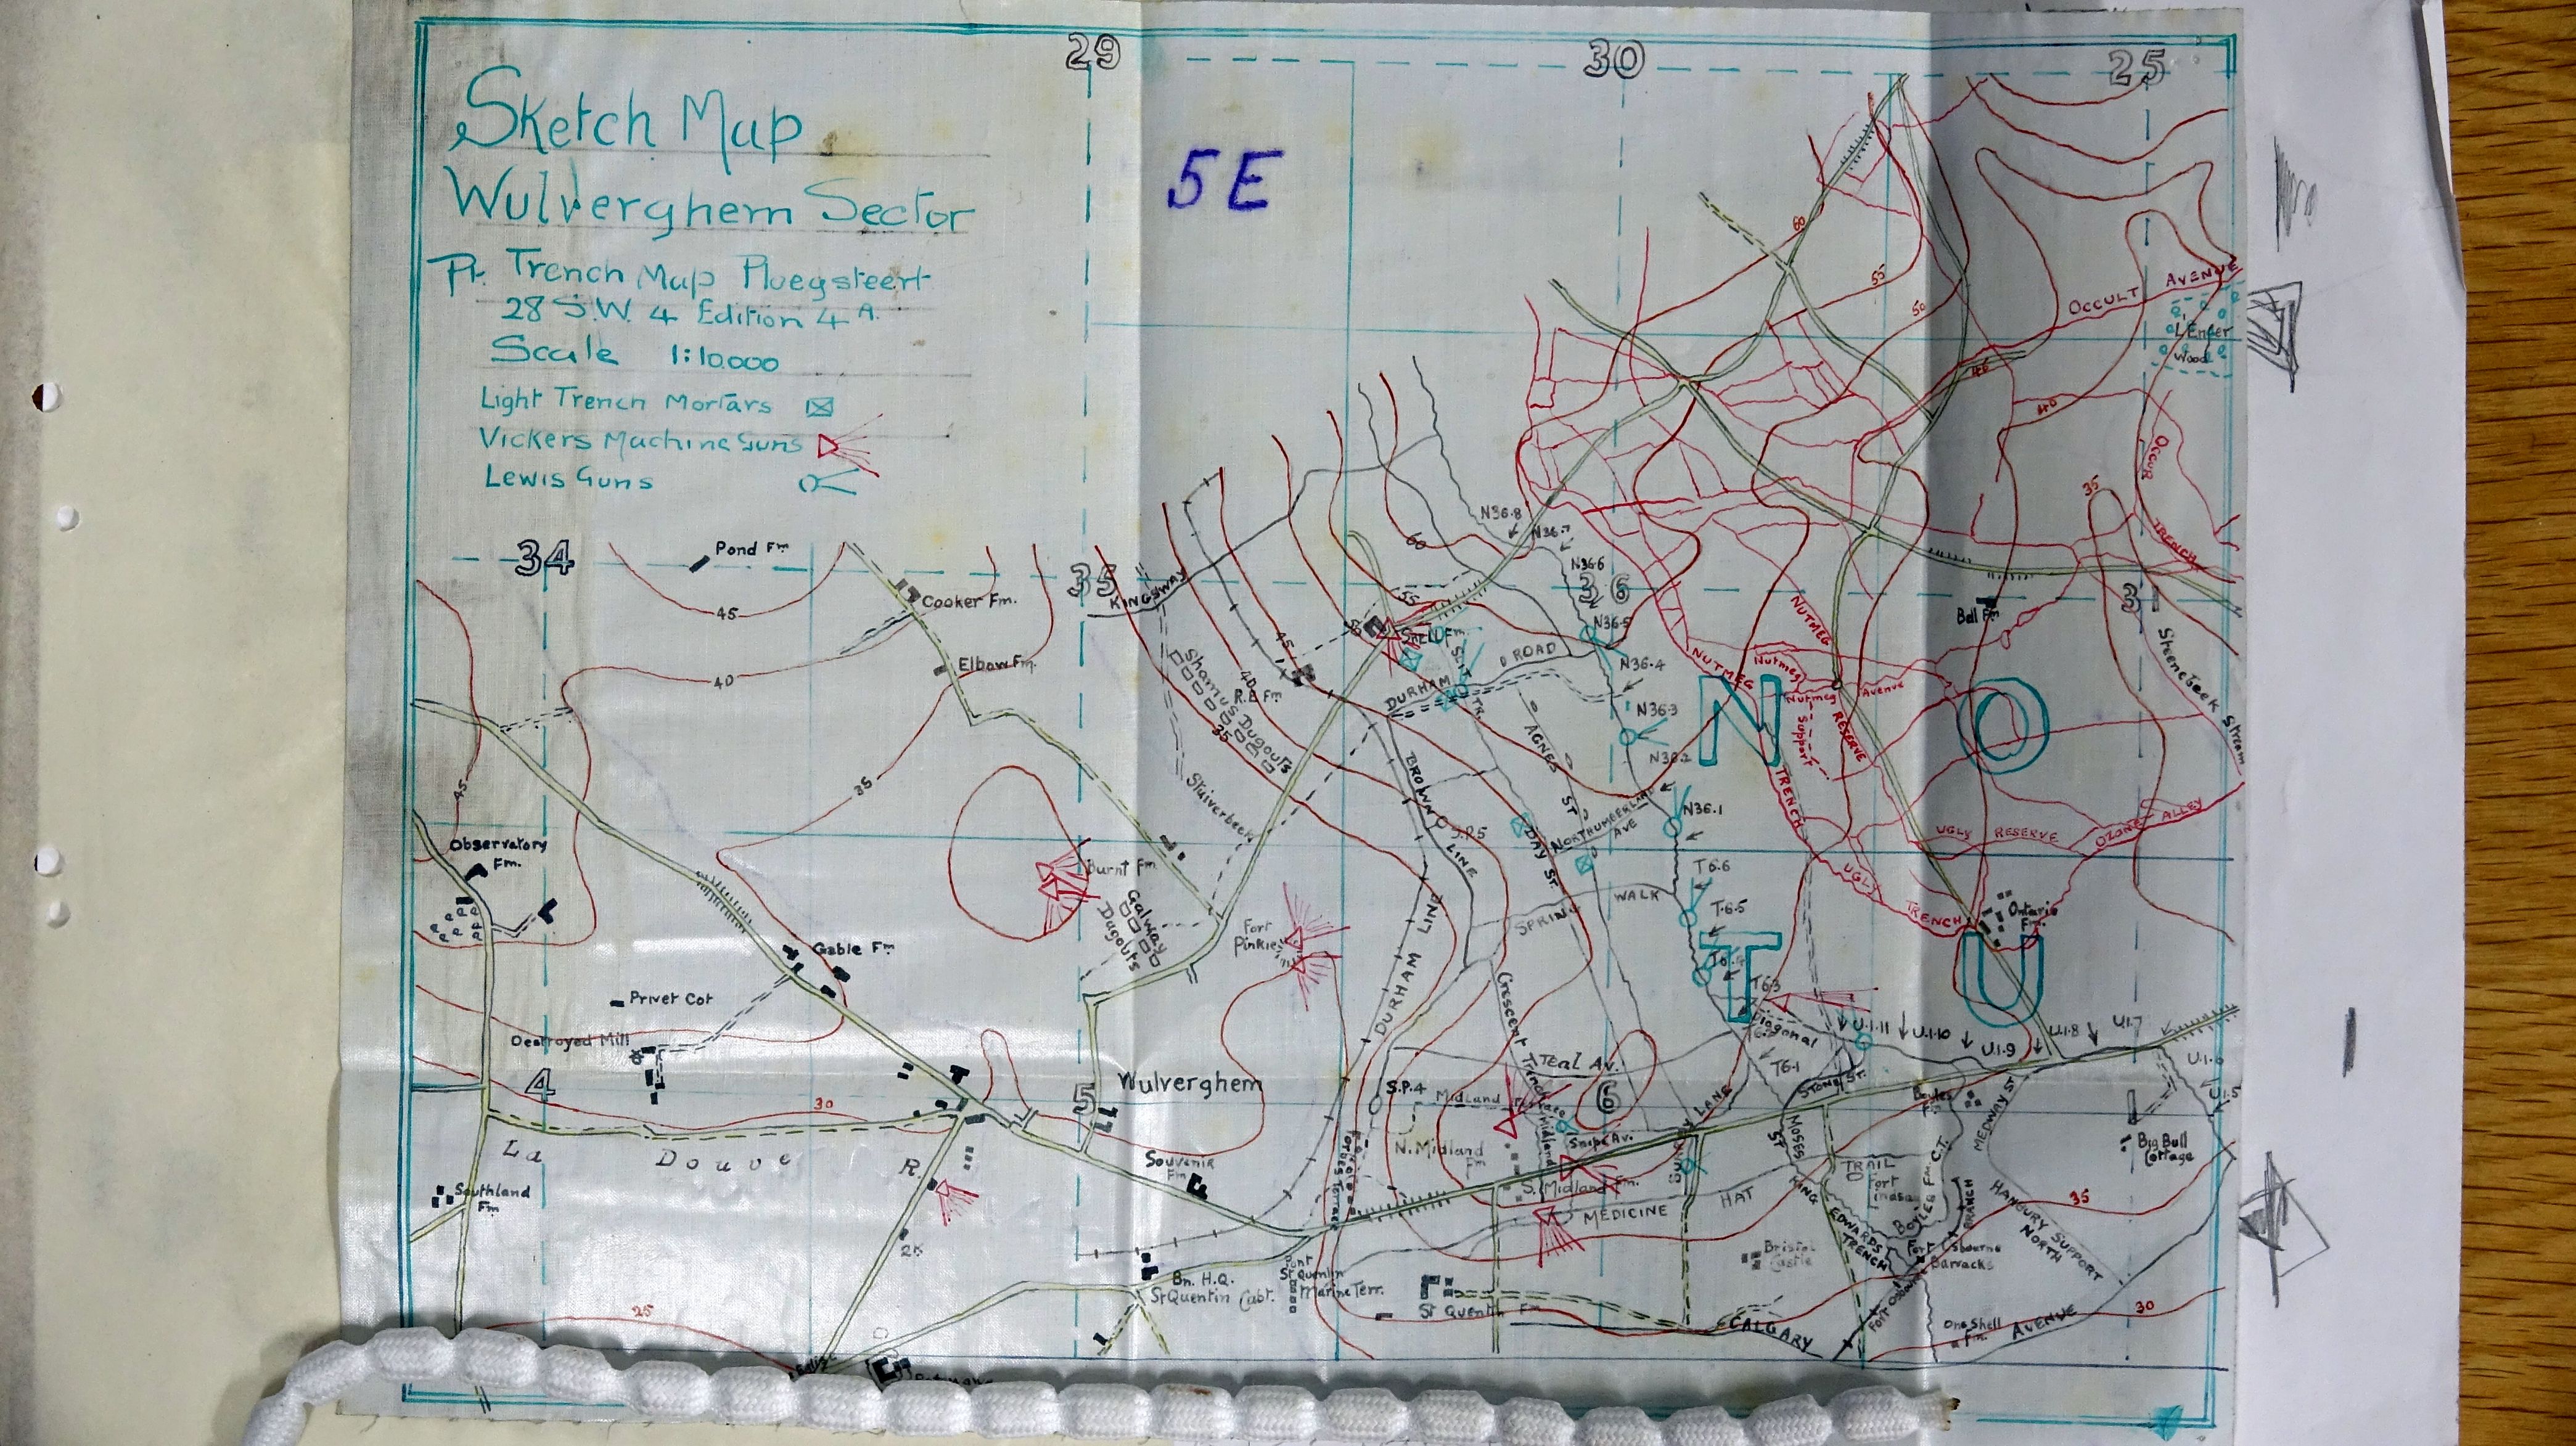 29
30
25
Sketch Map
Wulverghem Sector
Pt. Trench Map Pluegsteert
28 S.W. 4 Edition 4 A.
Scale 1:10.000
Light Trench Mortars
Vickers Machine Guns
Lewis Guns
5 E
60
55
50
OCCULT AVENUE
L'Enfer
Wood
40
OCCUR
TRENCH
35
34
Pond Fm
45
Cooker Fm.
Elbow Fm.
40
35
45
35
KINGSWAY
Shamus Dugouts
R.E Fm
45
40
35
Stuiverbeek
60
55
N36.8
N36.7
N36.6
36
N36.5
N36.4
N36.3
N36.2
N36.1
Shell Fm.
DURHAM ROAD
AGNES ST
BROWN LINE
S.P.5
DAY ST.
NORTHUMBERLAND
AVE
NUTMEG
NUTMEG
TRENCH
Nutmeg
Nutmeg
Support
Avenue
RESERVE
N
O
Ball Fm
31
Steenebeek Stream
UGLY RESERVE
OZONE ALLEY
UGLY
TRENCH
Ontario
Fm.
Observatory
Fm.
Burnt Fm.
Galway
Dugouts
Fort
Pinkie
Gable Fm
Privet Cot
Destroyed Mill
4
5
6
Wulverghem
30
DURHAM LINE
SPRING WALK
Crescent Trench
T6.6
T.6.5
T6.3
T6.1
T
U
Diagonal
U.1.11
U.1.10
U.1.9
U.1.8
U1.7
U1.6
U1.5
Teal Av.
S.P.4
Midland
Midland
N. Midland
Fm
Snipe Av.
S. Midland Fm.
LANE
STONE ST.
MOSES
ST
KING
EDWARDS
TRENCH
TRAIL
Fort
Boyles
Fm
BOYLES Fm. C.T.
BRANCH
MEDWAY ST
HANBURY SUPPORT
NORTH
Big Bull
Cottage
35
La Douve R.
Southland
Fm
Souvenir
Fm
MEDICINE HAT
Bristol
Castle
Fort Osbourne
Barracks
Bn. H.Q.
St Quentin Cabt.
St Quentin
Marine Terr.
St Quentin Fm
25
CALGARY AVENUE
One Shell
Fm.
30